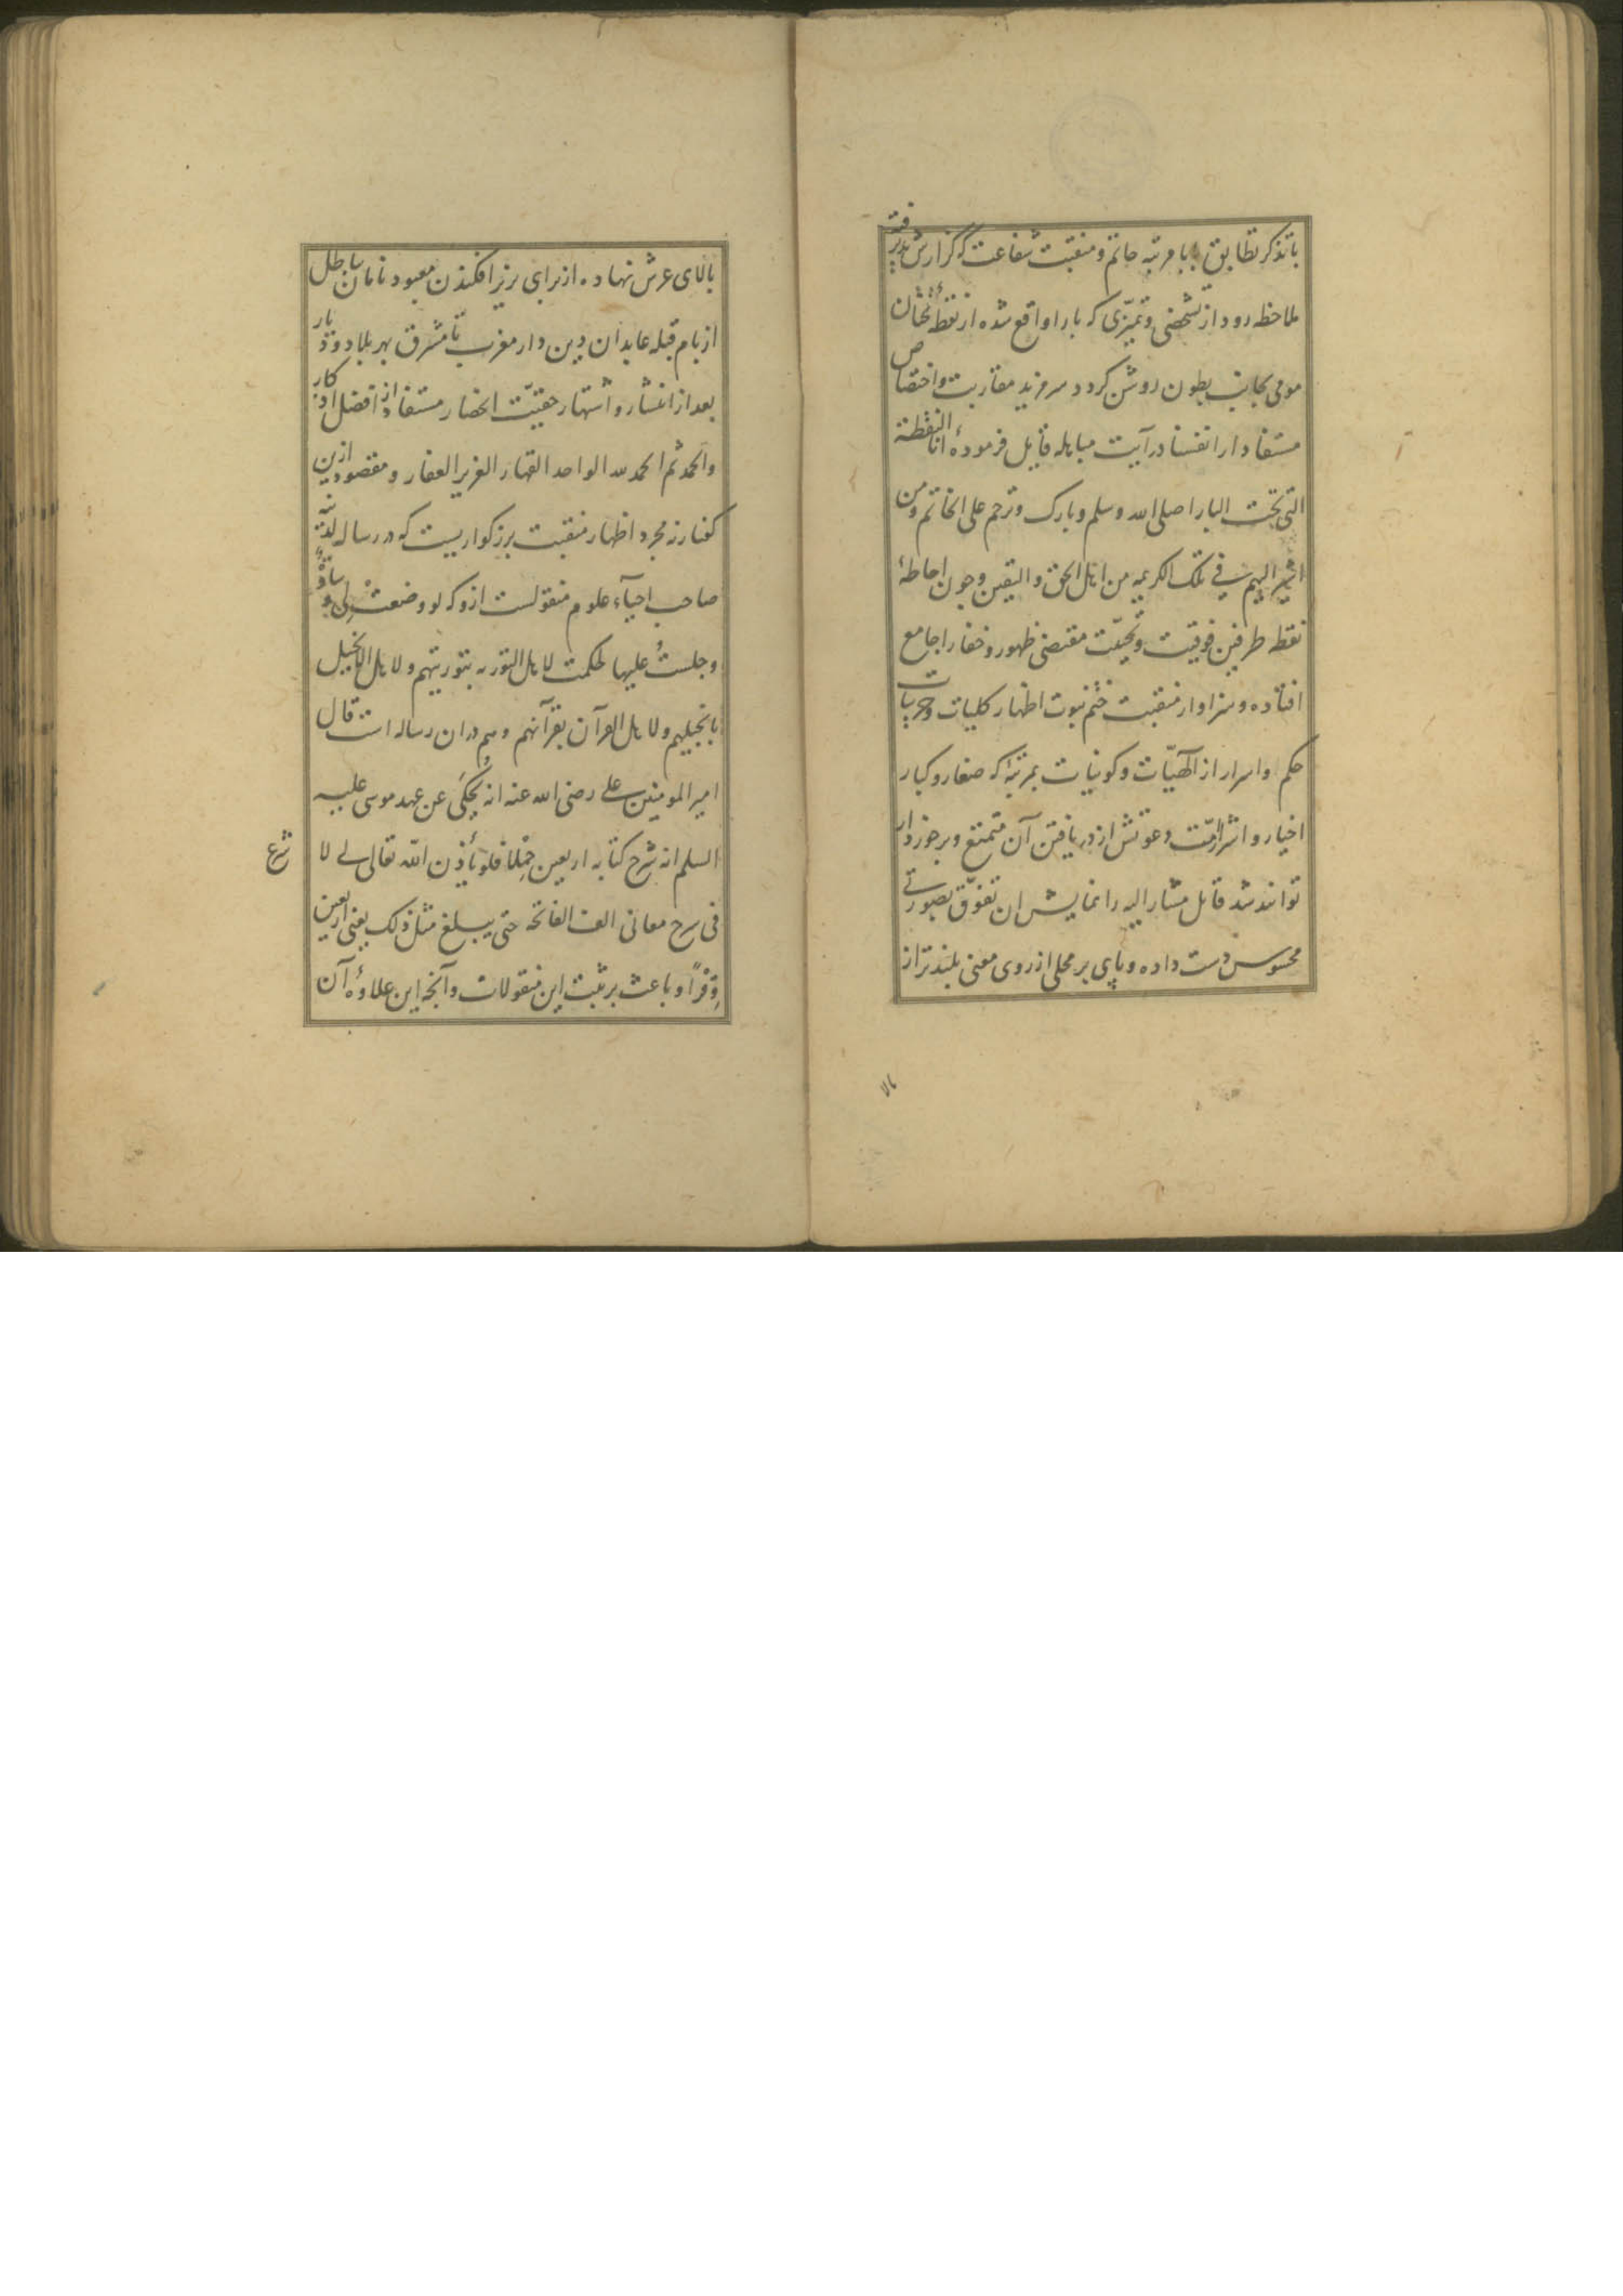 با تذکر تطابق با با مرتبه خاتم و منقبت شفاعت کزارش پذیرفته
ملاحظه رود از تشخصی و تمیزی که با را واقع شده از نقطه تحتان
مومی بجانب بطون روشن کردد سر مزید مقاربت و اختصاص
مستفاد از انفسنا در آیت مباهله قایل فرموده انا النقطة
التی تحت الباء صلی الله وسلم وبارک وترحم علی الخاتم ومن
اشیر الیهم فی تلک الکریمه من اهل الحق والیقین و چون احاطهٔ
نقطه طرفین فوقیت و تحتیت مقتضی ظهور و خفا را جامع
افتاده و سزاوار منقبت ختم نبوت اظهار کلیات و جزییات
حکم و اسرار از الهیّات و کونیات بمرتبهٔ که صغار و کبار
اخیار و اشرار امّت دعوتش از دریافتن آن متمتع و برخوردار
توانند شد قایل مشار الیه را نمایش ان تفوّق بصورتی
محسوس دست داده و پای بر محلی از روی معنی بلندتر از
بالای عرش نهاده از برای بزیر افکندن معبود نامان باطل
از بام قبله عابدان دین دار مغرب تا مشرق بهر بلاد و دیار
بعد از انتشار و اشتهار حقیّت انحصار مستفاد از افضل اذکار
والحمد ثم الحمد لله الواحد القهار العزیز الغفار و مقصود ازین
کفتار نه مجرد اظهار منقبت بزرکواریست که در رساله لدنیّه
صاحب احیآء علوم منقولست ازو که لو وضعتْ لی وسادةٌ
وجلستُ علیها لحکمت لاهل التوریه بتوریتهم ولاهل الانجیل
بانجیلهم ولاهل القرآن بقرآنهم و هم در ان رساله است قال
امیر المومنین علی رضی الله عنه انه یُحکَی عن عهد موسی علیه
السلم انه شرح کتابه اربعین حِمْلاً فلو یأذن الله تعالی لی لا
شرع
فی شرح معانی الف الفاتحه حتی یبلغ مثل ذلک یعنی اربعین
وِقْراً و باعث بر ثبت این منقولات و آنچه این علاوهٔ آن